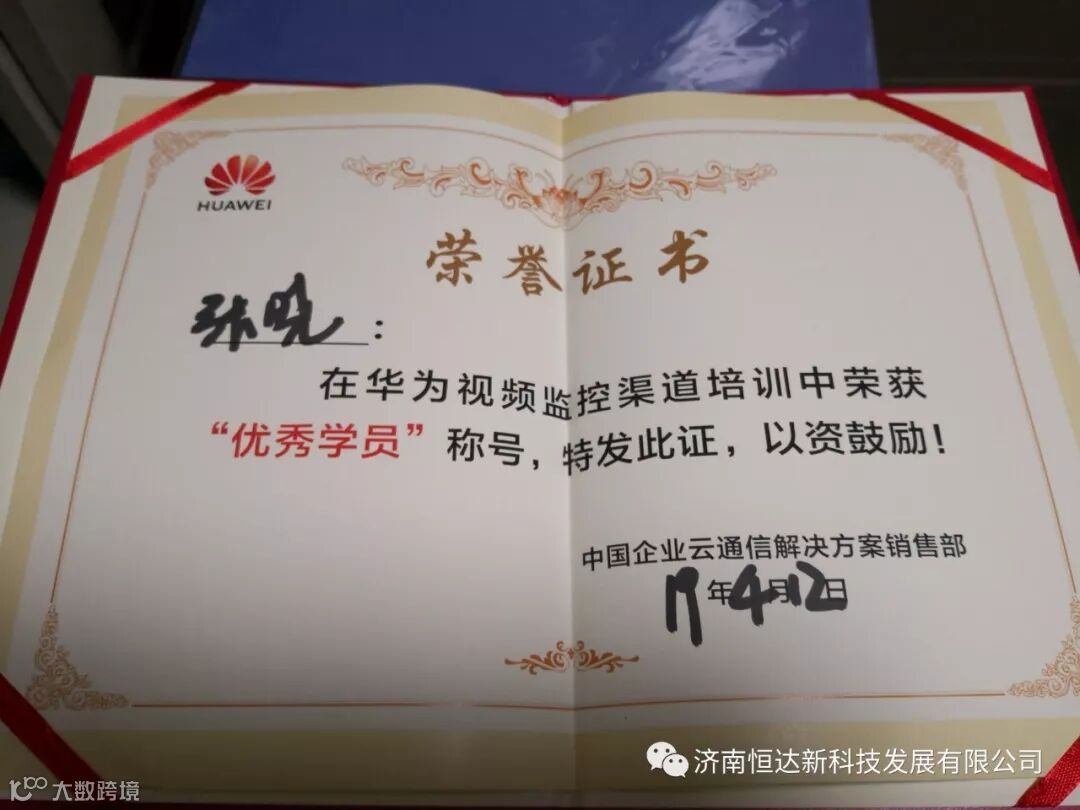 HUAWEI
荣誉证书
张晓：
在华为视频监控渠道培训中荣获
“优秀学员”称号，特发此证，以资鼓励！
中国企业云通信解决方案销售部
19年4月12日
济南恒达新科技发展有限公司
大数跨境